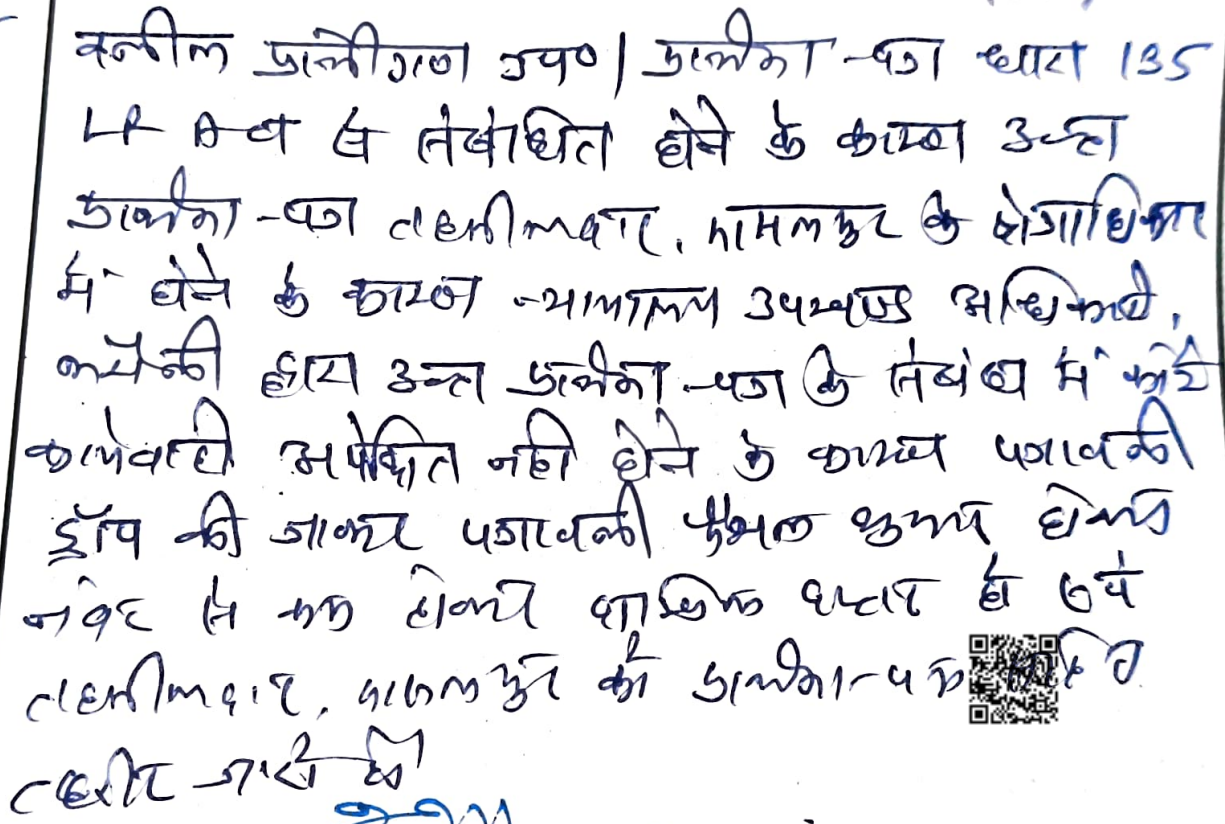 वकील प्रार्थीगण उप०। प्रार्थना-पत्र धारा 135
LR Act से संबंधित होने के कारण उक्त
प्रार्थना-पत्र तहसीलदार, के क्षेत्राधिकार
में होने के कारण न्यायालय उपखण्ड अधिकारी,
द्वारा उक्त प्रार्थना-पत्र के संबंध में कोई
कार्यवाही अपेक्षित नहीं होने के कारण पत्रावली
ड्रॉप की जाकर पत्रावली फैसल शुमार होकर
नंबर से कम होकर दाखिल दफ्तर हो एवं
तहसीलदार, को प्रार्थना-पत्र
तहरीर जारी हो